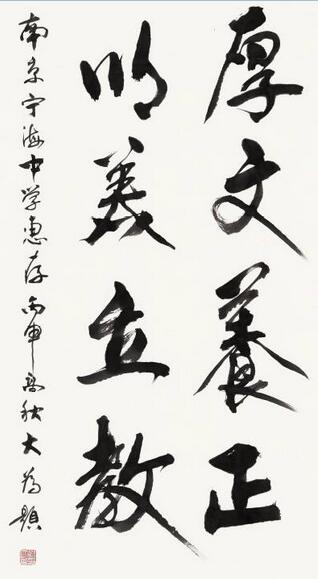 厚文養正
明義立教
南京宁海中学惠存丙申高秋大为題